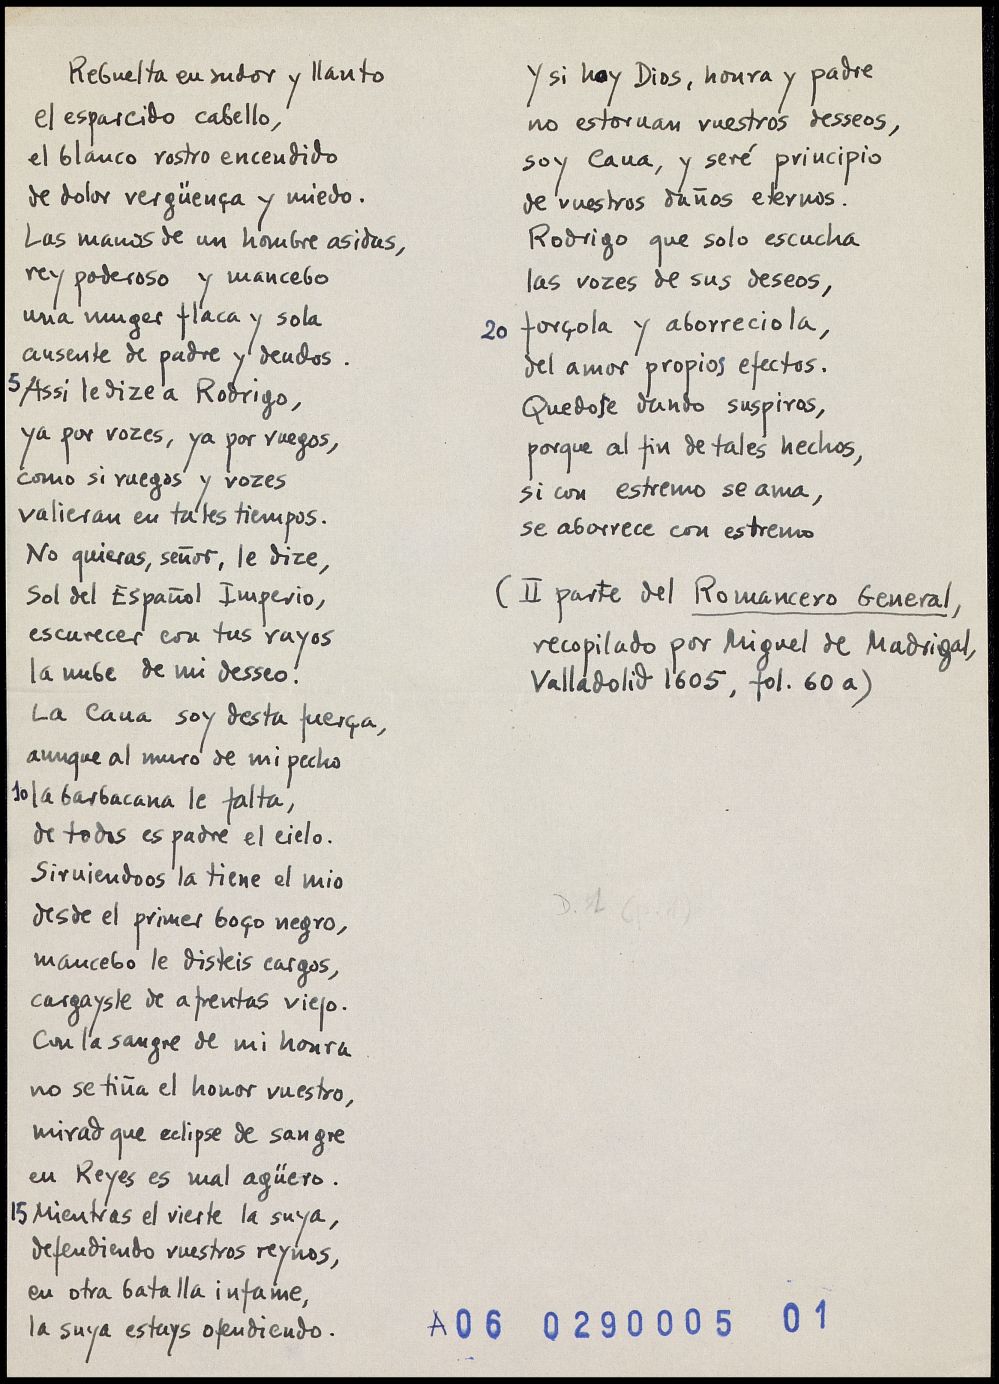 Rebuelta en sudor y llanto
el esparcido cabello,
el blanco rostro encendido
de dolor vergüença y miedo.
Las manos de un hombre asidas,
rey poderoso y mancebo
una muger flaca y sola
ausente de padre y deudos.
5 Assi le dize a Rodrigo,
ya por vozes, ya por ruegos,
como si ruegos y vozes
valieran en tales tiempos.
No quieras, señor, le dize,
Sol del Español Imperio,
escurecer con tus rayos
la nube de mi desseo.
La Caua soy desta fuerça,
aunque al muro de mi pecho
10 la barbacana le falta,
de todos es padre el cielo.
Siruiendoos la tiene el mio
desde el primer boço negro,
mancebo le disteis cargos,
cargaysle de afrentas viejo.
Con la sangre de mi honra
no se tiña el honor vuestro,
mirad que eclipse de sangre
en Reyes es mal agüero.
15 Mientras el vierte la suya,
defendiendo vuestros reynos,
en otra batalla infame,
la suya estays ofendiendo.
Y si hay Dios, honra y padre
no estoruan vuestros desseos,
soy Caua, y seré principio
de vuestros daños eternos.
Rodrigo que solo escucha
las vozes de sus deseos,
20 forçola y aborreciola,
del amor propios efectos.
Quedose dando suspiros,
porque al fin de tales hechos,
si con estremo se ama,
se aborrece con estremo
(II parte del Romancero General,
recopilado por Miguel de Madrigal,
Valladolid 1605, fol. 60 a)
A06 0290005 01